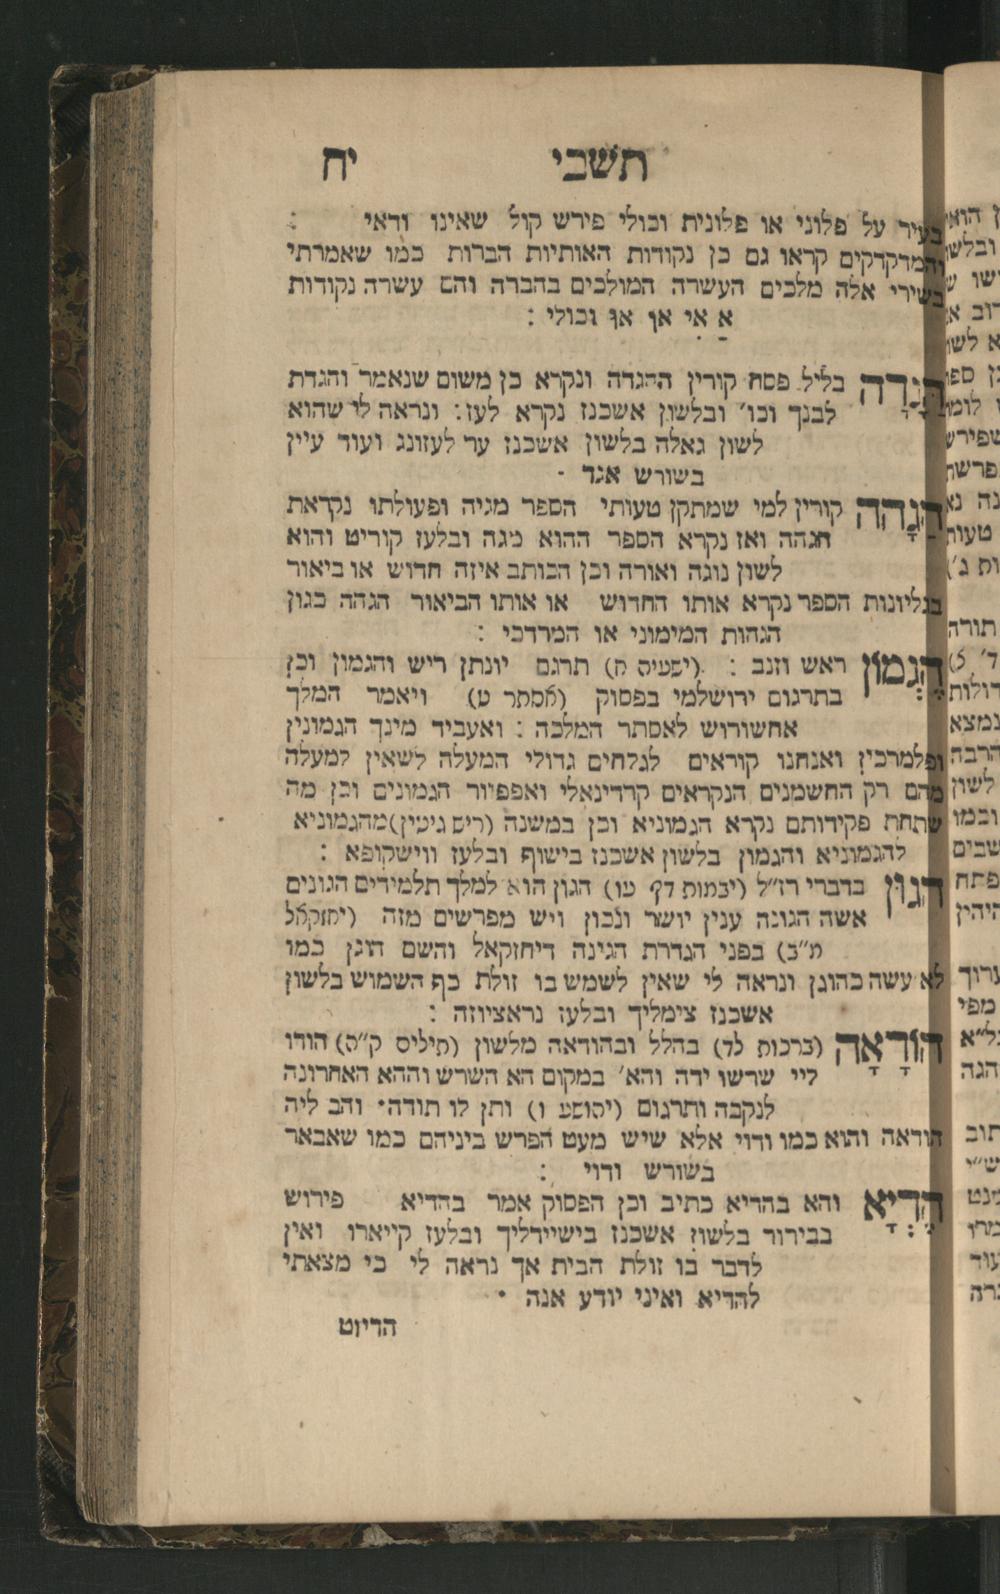 תשבי יח
בעיר על פלוני או פלונית וכולי פירש קול שאינו ודאי :
והמדקדקים קראו גם כן נקודות האותיות הברות כמו שאמרתי
בשירי אלה מלכים העשרה המולכים בהברה והם עשרה נקודות
א אי אן או וכולי :
הַגָּדָה בליל פסח קורין ההגדה ונקרא כן משום שנאמר והגדת
לבנך וכו' ובלשון אשכנז נקרא לעז: ונראה לי שהוא
לשון גאלה בלשון אשכנז ער לעזונג ועוד עיין
בשורש אגד -
הַגָּהָה קורין למי שמתקן טעותי הספר מגיה ופעולתו נקראת
הגהה ואז נקרא הספר ההוא מגה ובלעז קוריט והוא
לשון נוגה ואורה וכן הכותב איזה חדוש או ביאור
בגליונות הספר נקרא אותו החדוש או אותו הביאור הגהה כגון
הגהות המימוני או המרדכי :
הֶגְמוֹן ראש וזנב : (ישעיה ט) תרגם יונתן ריש והגמון וכן
בתרגום ירושלמי בפסוק (אסתר ט) ויאמר המלך
אחשורוש לאסתר המלכה : ואעביד מינך הגמונין
ופלמרכין ואנחנו קוראים לגלחים גדולי המעלה לשאין למעלה
מהם רק החשמנים הנקראים קרדינאלי ואפפיור הגמונים וכן מה
שתחת פקידותם נקרא הגמוניא וכן במשנה (ריש גיטין) מהגמוניא
להגמוניא והגמון בלשון אשכנז בישוף ובלעז ווישקופא :
הָגוּן בדברי רז"ל (יבמות דף עו) הגון הוא למלך תלמידים הגונים
אשה הגונה ענין יושר ונכון ויש מפרשים מזה (יחזקאל
מ"ב) בפני הגדרת הגינה דיחזקאל והשם הוגן כמו
לא עשה כהוגן ונראה לי שאין לשמש בו זולת כף השמוש בלשון
אשכנז צימליך ובלעז גראציוזה :
הוֹדָאָה (ברכות לד) בהלל ובהודאה מלשון (תילים ק"ה) הודו
ליי שרשו ידה והא' במקום הא השרש וההא האחרונה
לנקבה ותרגום (יהושע ז) ותן לו תודה• והב ליה
הודאה והוא כמו ודוי אלא שיש מעט הפרש ביניהם כמו שאבאר
בשורש ודוי :
הֶדְיָא והא בהדיא כתיב וכן הפסוק אמר בהדיא פירוש
בבירור בלשון אשכנז בישיידליך ובלעז קייארו ואין
לדבר בו זולת הבית אך נראה לי כי מצאתי
להדיא ואיני יודע אנה •
הדיוט